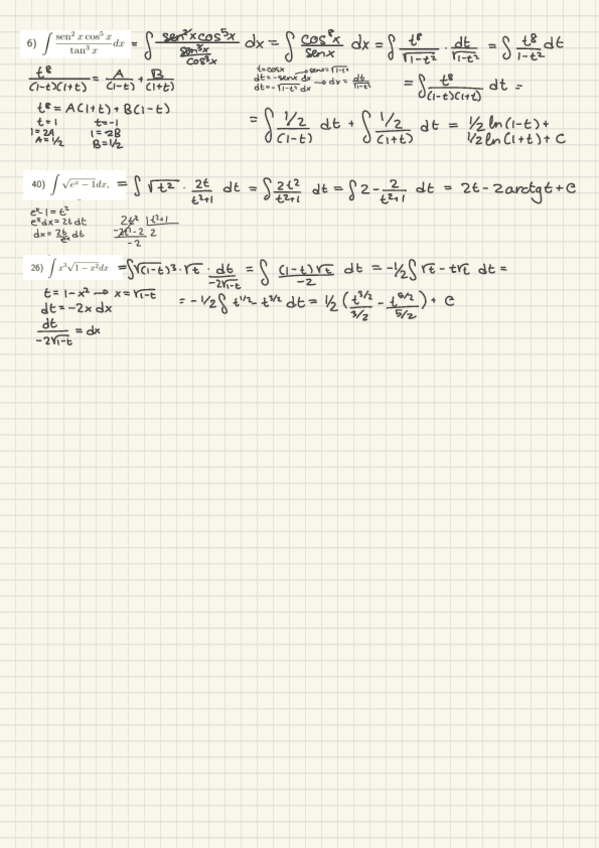 6) ∫ sen² x cos⁵ x / tan³ x dx = ∫ sen²x cos⁵x / (sen³x / cos³x) dx = ∫ cos⁸x / senx dx = ∫ t⁸ / √1-t² · dt / √1-t² = ∫ t⁸ / 1-t² dt
t=cosx → senx=√1-t²
dt=-senx dx → dx = dt / √1-t²
dt=-√1-t² dx
= ∫ t⁸ / (1-t)(1+t) dt =
t⁸ / (1-t)(1+t) = A / (1-t) + B / (1+t)
t⁸ = A(1+t) + B(1-t)
t=1 t=-1
1=2A 1=2B
A=1/2 B=1/2
= ∫ 1/2 / (1-t) dt + ∫ 1/2 / (1+t) dt = 1/2 ln(1-t) +
1/2 ln(1+t) + C
40) ∫ √eˣ − 1dx, = ∫ √t² · 2t / t²+1 dt = ∫ 2t² / t²+1 dt = ∫ 2 - 2 / t²+1 dt = 2t - 2arctgt + C
eˣ-1=t²
eˣdx=2t dt
dx = 2t / eˣ dt
2t² | t²+1
-2t²-2 2
-2
26) ∫ x³√1 − x²dx = ∫ √(1-t)³ · √t · dt / -2√1-t = ∫ (1-t)√t / -2 dt = -1/2 ∫ √t - t√t dt =
t=1-x² → x=√1-t
dt=-2x dx
dt / -2√1-t = dx
= -1/2 ∫ t^1/2 - t^3/2 dt = 1/2 (t^3/2 / 3/2 - t^5/2 / 5/2) + C